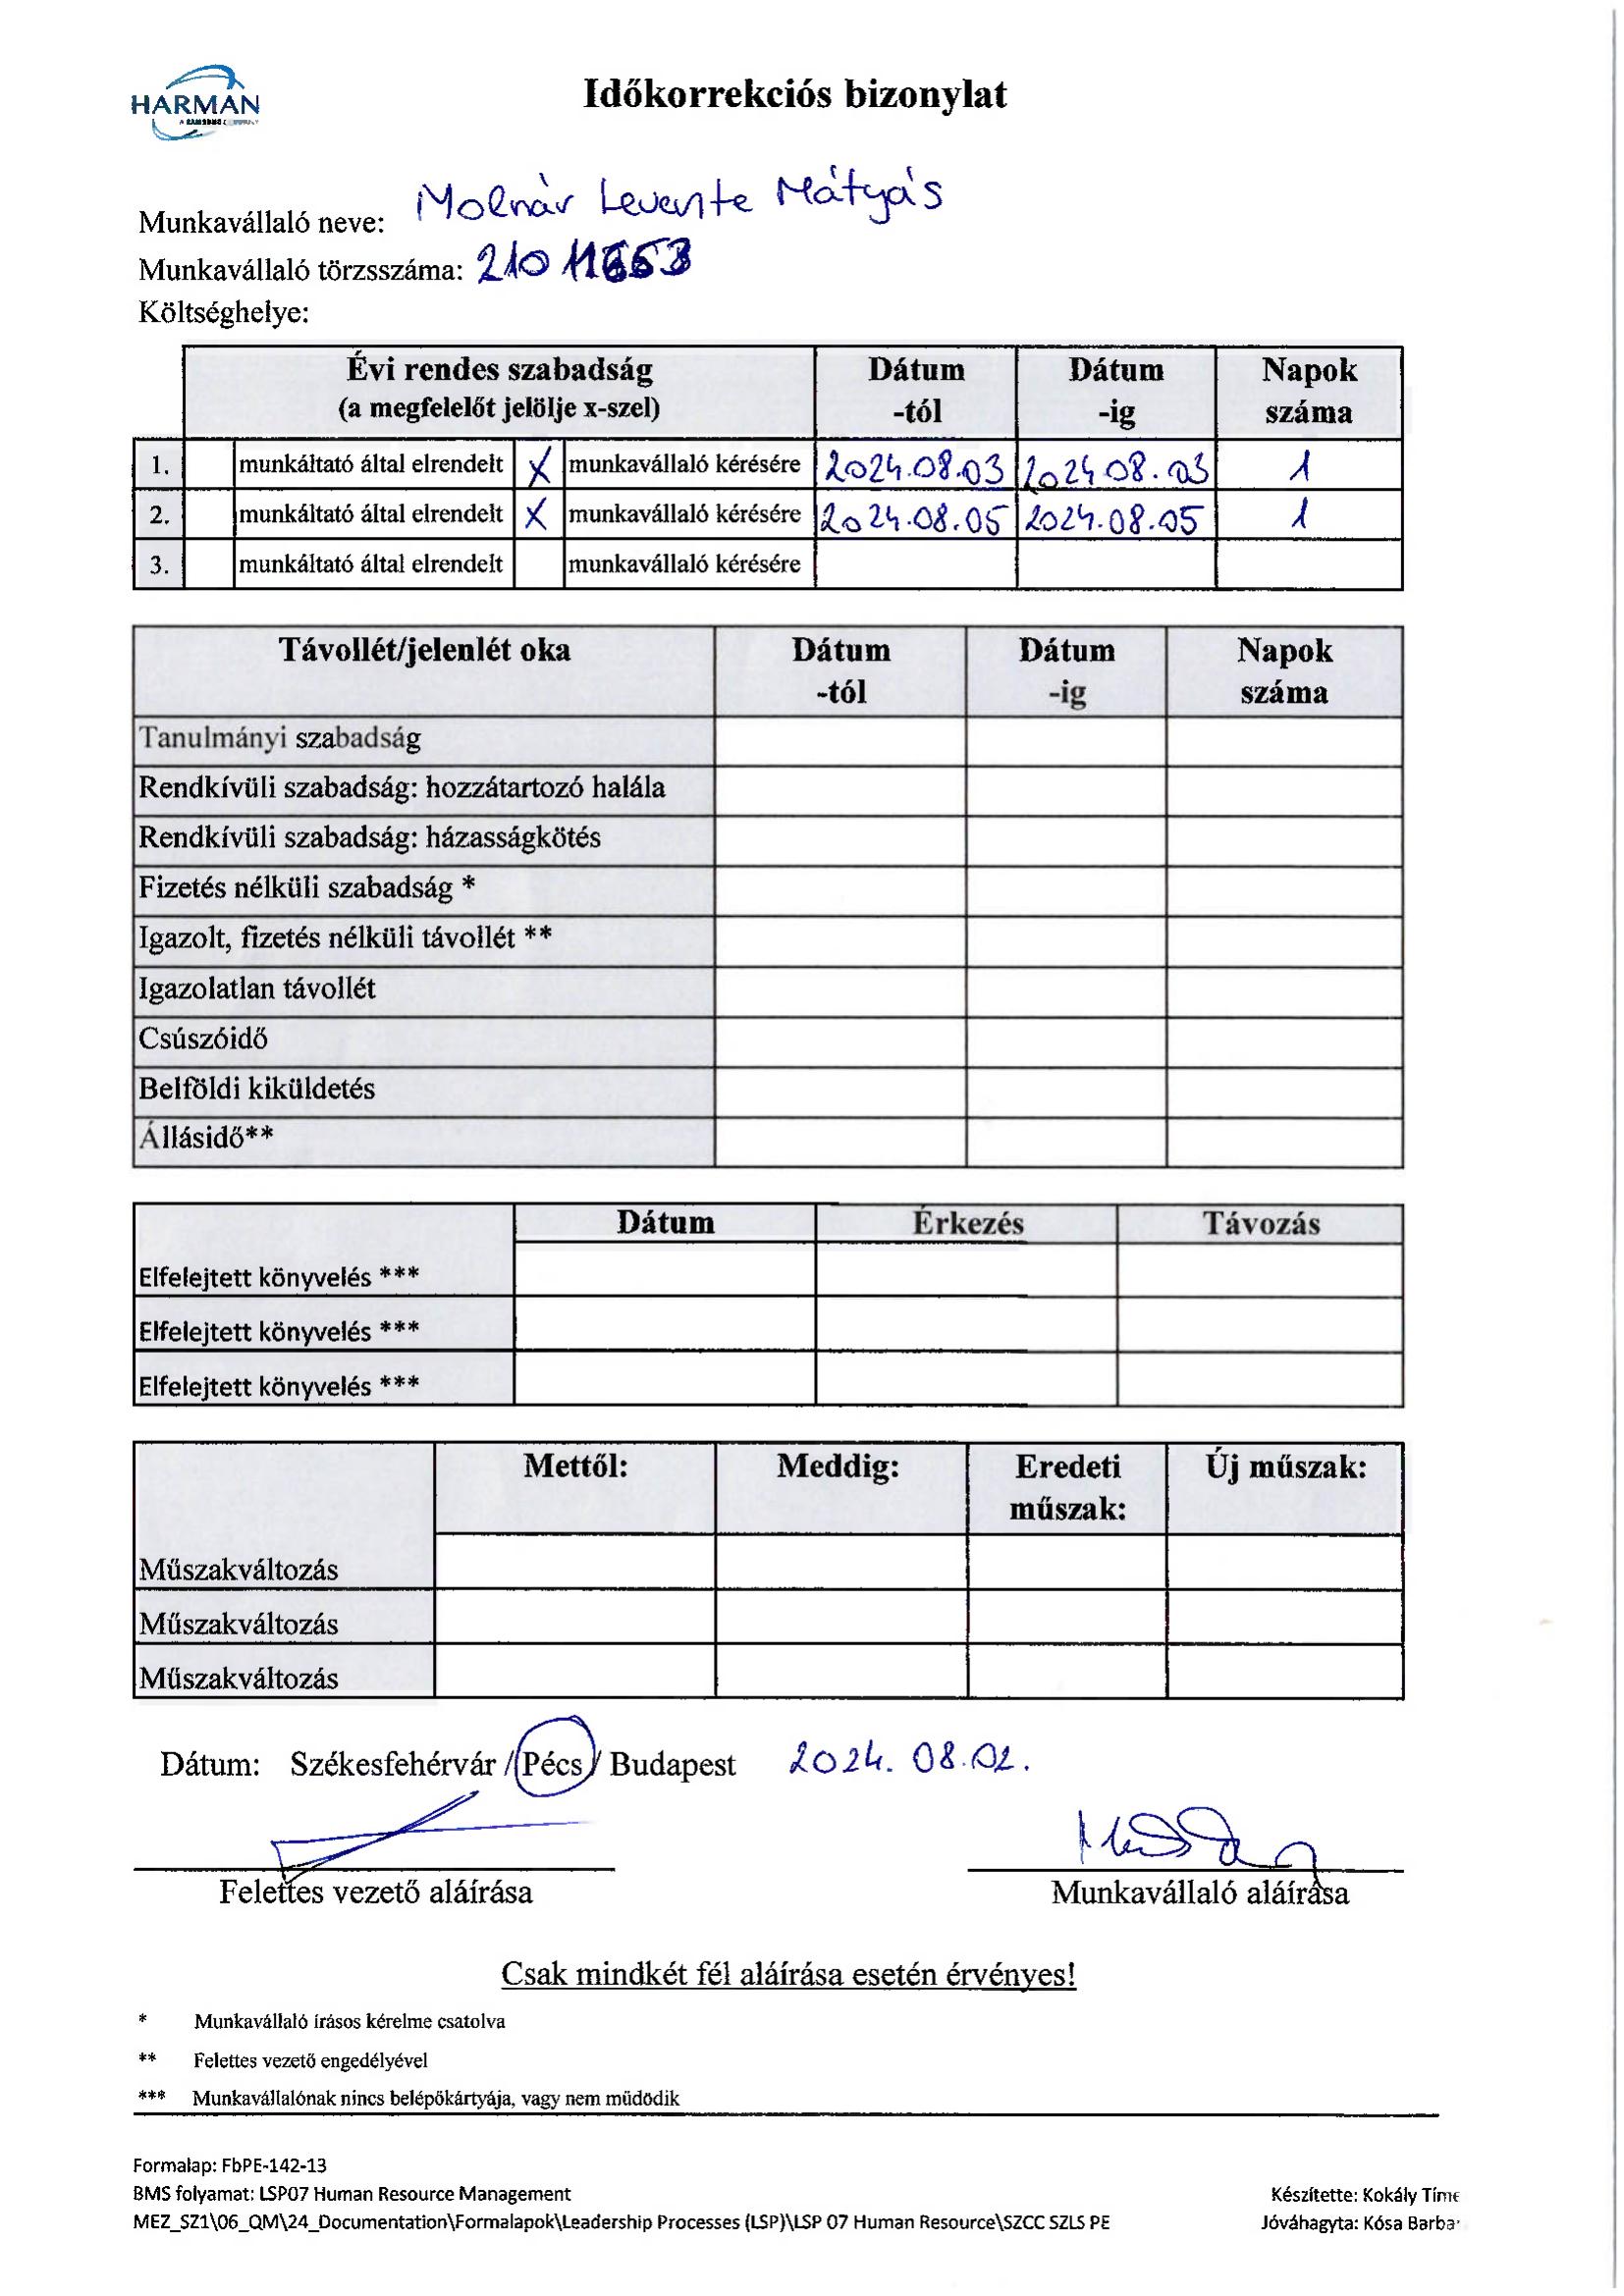 HARMAN
A SAMSUNG COMPANY
Időkorrekciós bizonylat
Munkavállaló neve: Molnár Levente Mátyás
Munkavállaló törzsszáma:
Költséghelye:
Évi rendes szabadság (a megfelelőt jelölje x-szel) Dátum -tól Dátum -ig Napok száma
1. munkáltató által elrendelt X munkavállaló kérésére 2024.08.03 2024.08.03 1
2. munkáltató által elrendelt X munkavállaló kérésére 2024.08.05 2024.08.05 1
3. munkáltató által elrendelt munkavállaló kérésére
Távollét/jelenlét oka Dátum -tól Dátum -ig Napok száma
Tanulmányi szabadság
Rendkívüli szabadság: hozzátartozó halála
Rendkívüli szabadság: házasságkötés
Fizetés nélküli szabadság *
Igazolt, fizetés nélküli távollét **
Igazolatlan távollét
Csúszóidő
Belföldi kiküldetés
Állásidő**
Dátum Érkezés Távozás
Elfelejtett könyvelés ***
Elfelejtett könyvelés ***
Elfelejtett könyvelés ***
Mettől: Meddig: Eredeti műszak: Új műszak:
Műszakváltozás
Műszakváltozás
Műszakváltozás
Dátum: Székesfehérvár / Pécs / Budapest 2024. 08.02.
Felettes vezető aláírása Munkavállaló aláírása
Csak mindkét fél aláírása esetén érvényes!
* Munkavállaló írásos kérelme csatolva
** Felettes vezető engedélyével
*** Munkavállalónak nincs belépőkártyája, vagy nem müdödik
Formalap: FbPE-142-13
BMS folyamat: LSP07 Human Resource Management Készítette: Kokály Tíme
MEZ_SZ1\06_QM\24_Documentation\Formalapok\Leadership Processes (LSP)\LSP 07 Human Resource\SZCC SZLS PE Jóváhagyta: Kósa Barba